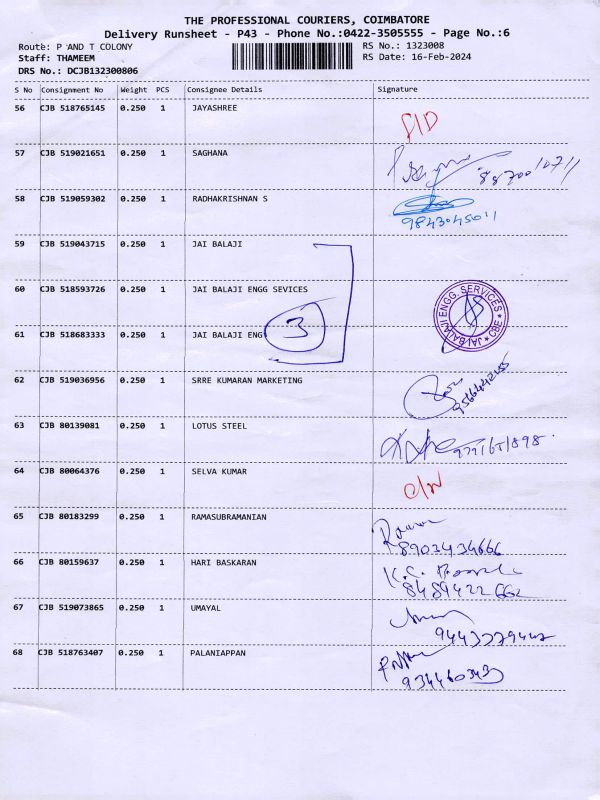 THE PROFESSIONAL COURIERS, COIMBATORE
Delivery Runsheet - P43 - Phone No.:0422-3505555 - Page No.:6
Route: P AND T COLONY
RS No.: 1323008
Staff: THAMEEM
RS Date: 16-Feb-2024
DRS No.: DCJB132300806
S No Consignment No Weight PCS Consignee Details Signature
56 CJB 518765145 0.250 1 JAYASHREE
57 CJB 519021651 0.250 1 SAGHANA
58 CJB 519059302 0.250 1 RADHAKRISHNAN S
9843045011
59 CJB 519043715 0.250 1 JAI BALAJI
60 CJB 518593726 0.250 1 JAI BALAJI ENGG SEVICES
JAI BALAJI ENGG. SERVICES CBE
61 CJB 518683333 0.250 1 JAI BALAJI ENG 3
62 CJB 519036956 0.250 1 SRRE KUMARAN MARKETING
63 CJB 80139081 0.250 1 LOTUS STEEL
64 CJB 80064376 0.250 1 SELVA KUMAR
65 CJB 80183299 0.250 1 RAMASUBRAMANIAN
8903434666
66 CJB 80159637 0.250 1 HARI BASKARAN
67 CJB 519073865 0.250 1 UMAYAL
68 CJB 518763407 0.250 1 PALANIAPPAN